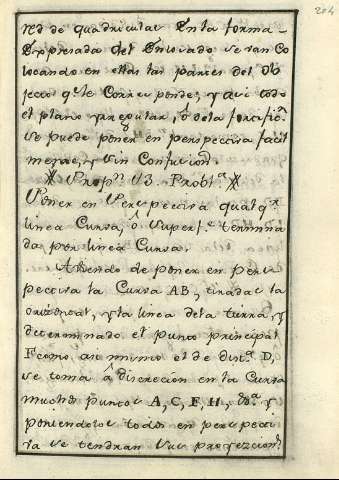 204
red de quadriculas En la forma
Expresada del Enlosado se van Co
locando en ellas las partes del Ob
jecto q.e le Corresponde, y assi todo
el plano yrregular, ô de la fortific.n
Se puede poner en perspectiva facil
mente, y sin Confucion.
Prop.n 13. Probl.a
Poner en Perspectiva qualq.r
linea Curva, ô superf.e termina
da, por linea Curva.
Aviendo de poner en pers
pectiva la Curva AB, tiradas la
orizontal, y la linea dela tierra, y
determinado el punto principal
F como asi mismo el de dist.a D,
se toma â discrecion en la Curva
muchos puntos A, C, F, H, &.a y
poniendolos todos en perspecti
va se tendran sus proyezcion.s